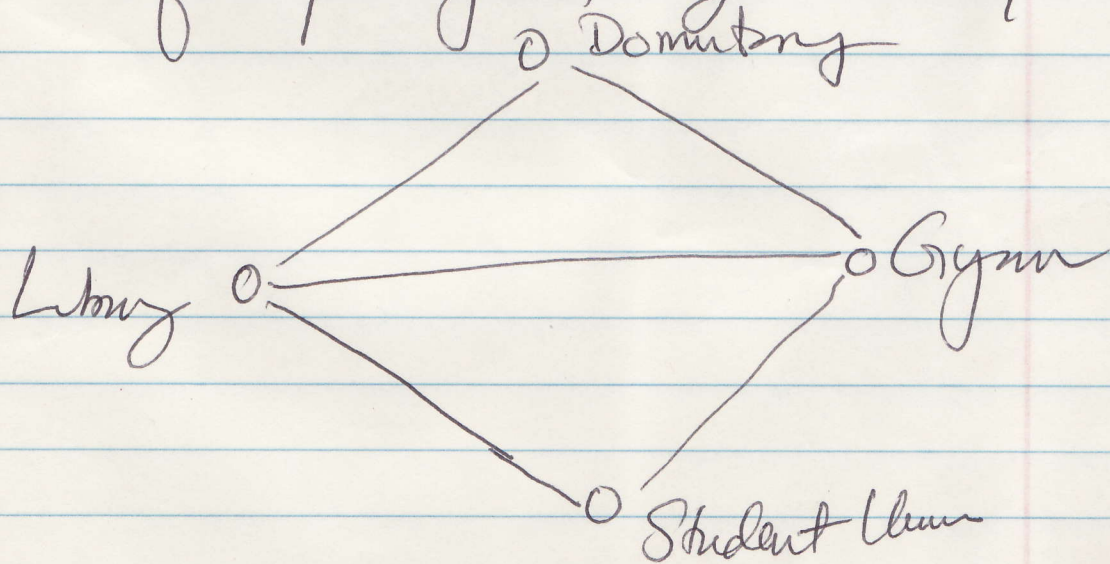 Dormitory
Library
Gym
Student Union